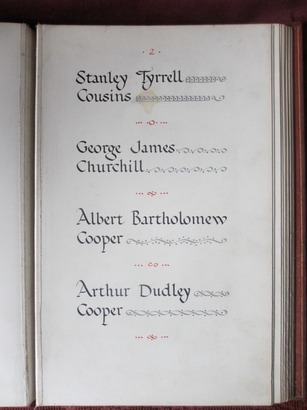 · 2 ·
Stanley Tyrrell
Cousins
George James
Churchill
Albert Bartholomew
Cooper
Arthur Dudley
Cooper